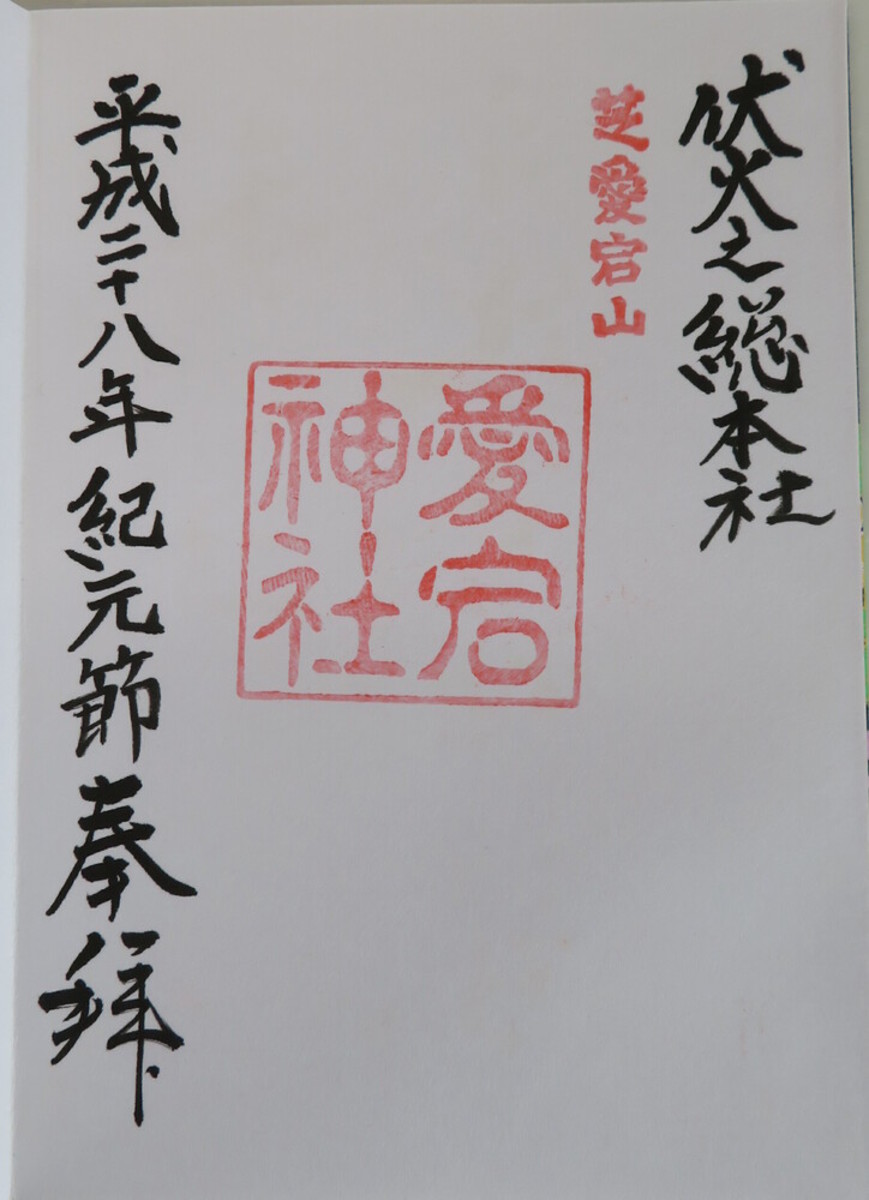 伏火之総本社
芝愛宕山
愛宕
神社
平成二十八年紀元節奉拝